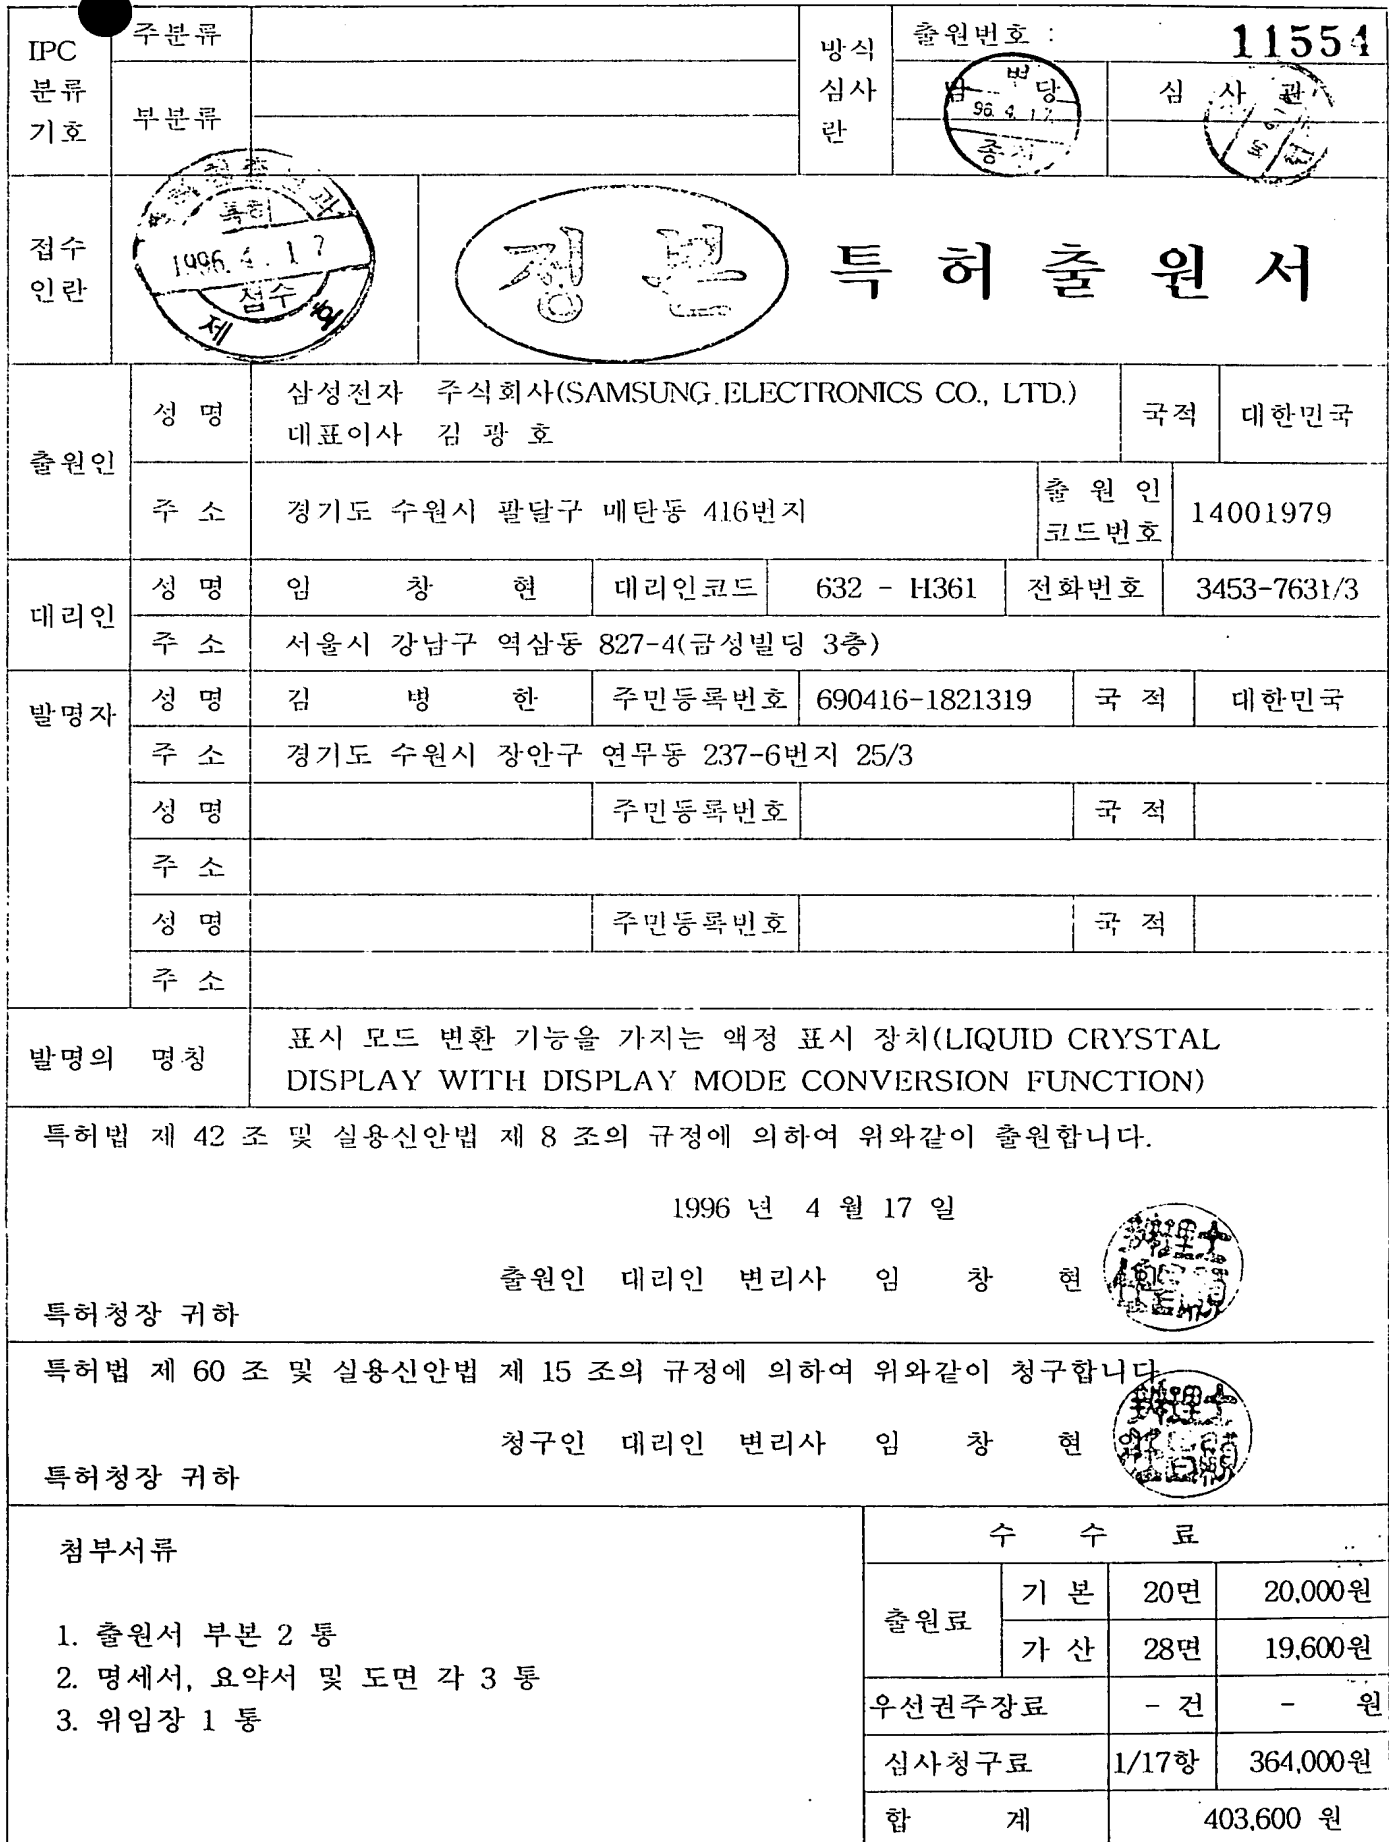 IPC
분류
기호
주분류
부분류
방식
심사
란
출원번호 :
11554
담당
96. 4. 17.
심 사 관
접수
인란
특허
1996. 4. 17
접수
제 호
정 본
특 허 출 원 서
출원인
성 명
삼성전자 주식회사(SAMSUNG ELECTRONICS CO., LTD.)
대표이사 김 광 호
국적
대한민국
주 소
경기도 수원시 팔달구 매탄동 416번지
출 원 인
코드번호
14001979
대리인
성 명 임 창 현 대리인코드 632 - H361 전화번호 3453-7631/3
주 소 서울시 강남구 역삼동 827-4(금성빌딩 3층)
발명자
성 명 김 병 한 주민등록번호 690416-1821319 국 적 대한민국
주 소 경기도 수원시 장안구 연무동 237-6번지 25/3
성 명 주민등록번호 국 적
주 소
성 명 주민등록번호 국 적
주 소
발명의 명칭
표시 모드 변환 기능을 가지는 액정 표시 장치(LIQUID CRYSTAL
DISPLAY WITH DISPLAY MODE CONVERSION FUNCTION)
특허법 제 42 조 및 실용신안법 제 8 조의 규정에 의하여 위와같이 출원합니다.
1996 년 4 월 17 일
출원인 대리인 변리사 임 창 현
특허청장 귀하
특허법 제 60 조 및 실용신안법 제 15 조의 규정에 의하여 위와같이 청구합니다
청구인 대리인 변리사 임 창 현
특허청장 귀하
첨부서류
1. 출원서 부본 2 통
2. 명세서, 요약서 및 도면 각 3 통
3. 위임장 1 통
수 수 료
출원료
기 본 20면 20,000원
가 산 28면 19,600원
우선권주장료 - 건 - 원
심사청구료 1/17항 364,000원
합 계 403,600 원